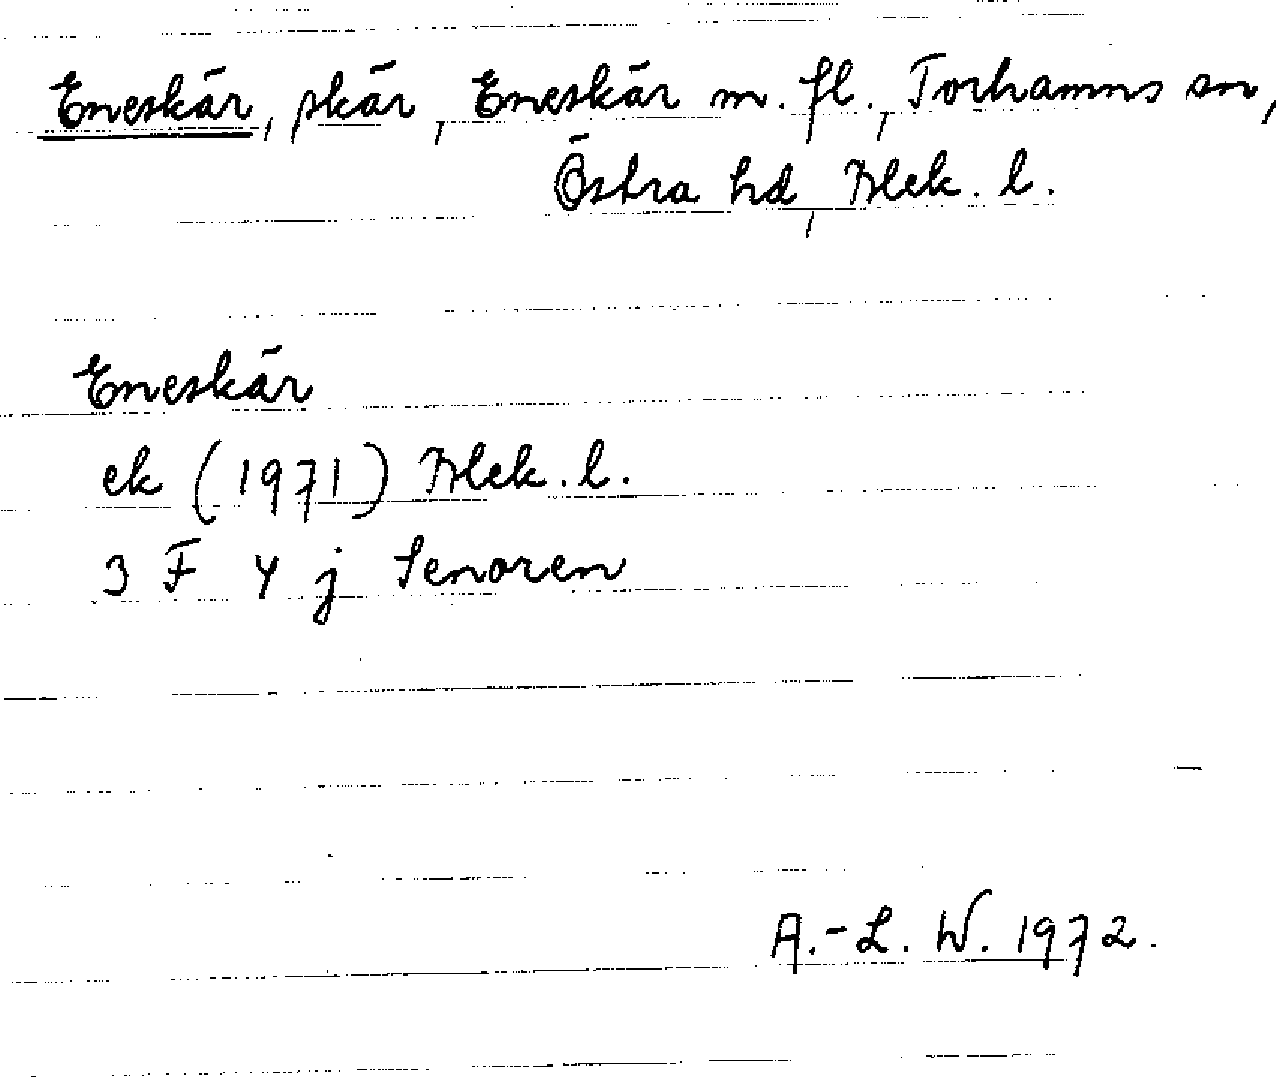 Eneskär, skär, Eneskär m. fl., Torhamns sn,
Östra hd, Blek. l.
Eneskär
ek (1971) Blek. l.
3 F 4 j Senoren
A.-L. W. 1972.